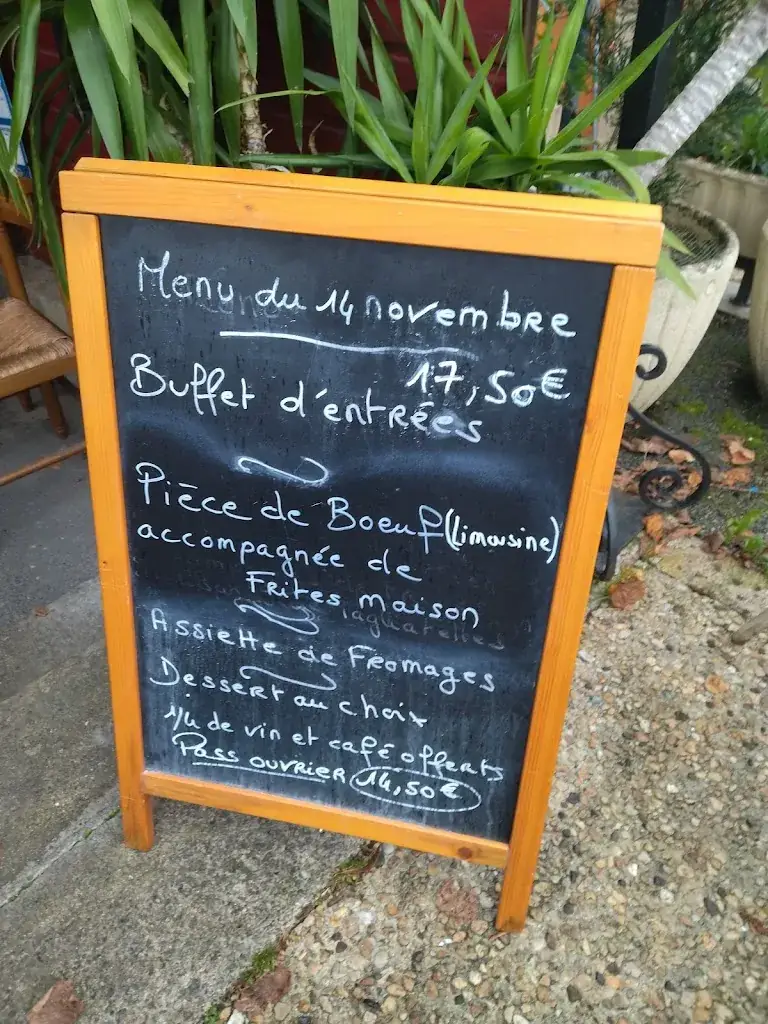 Menu du 14 novembre
17,50€
Buffet d'entrées
Pièce de Boeuf (Limousine)
accompagnée de
Frites maison
Assiette de Fromages
Dessert au choix
1/4 de vin et café offerts
Pass ouvrier 14,50€